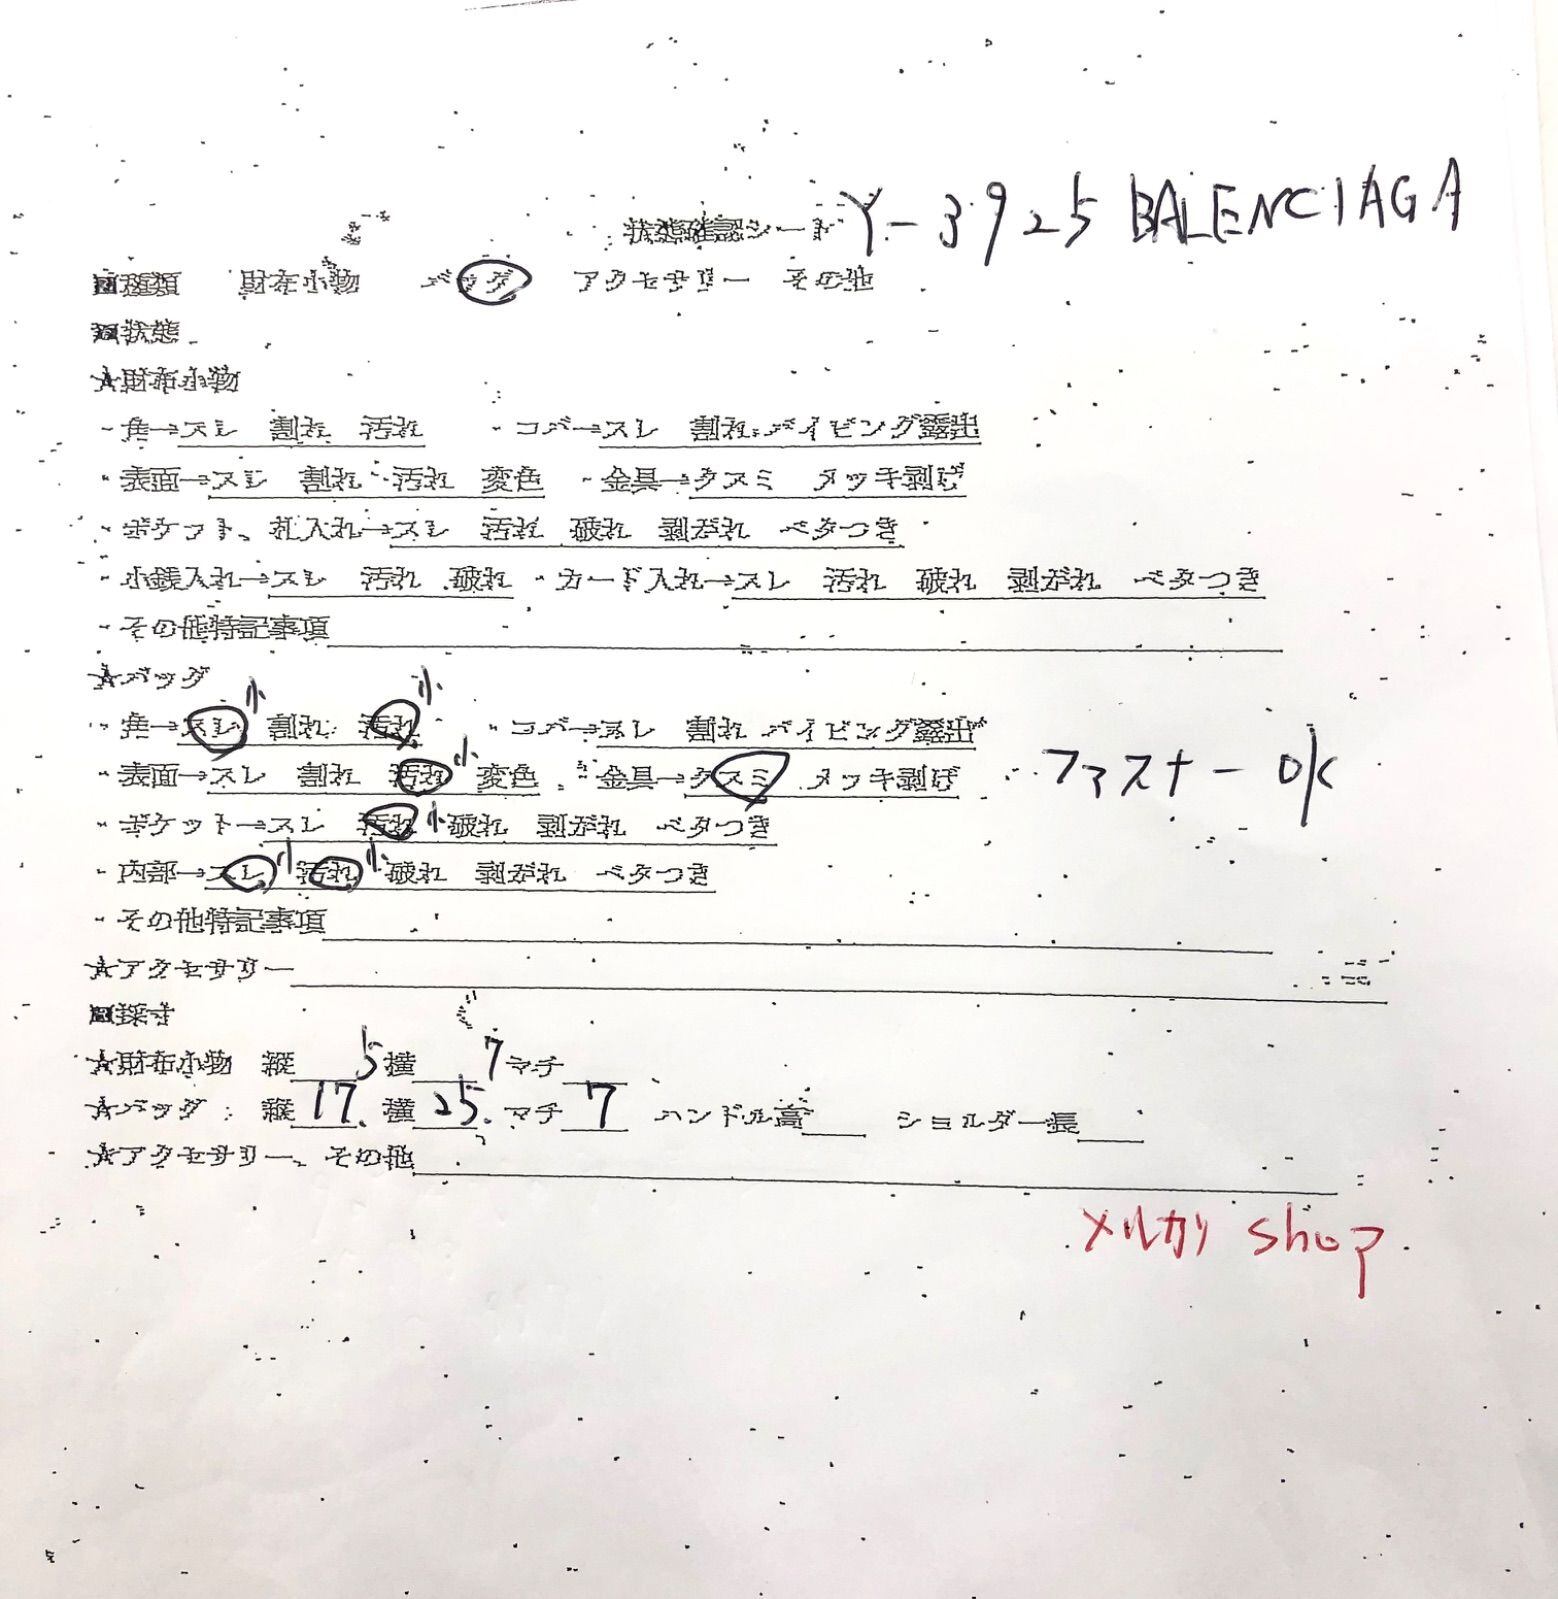 状態確認シート Y-3925 BALENCIAGA
■種類 財布小物 バッグ アクセサリー その他
■状態
★財布小物
・角→スレ 割れ 汚れ ・コバ→スレ 割れ パイピング露出
・表面→スレ 割れ 汚れ 変色 ・金具→クスミ メッキ剥げ
・ポケット、札入れ→スレ 汚れ 破れ 剥がれ ベタつき
・小銭入れ→スレ 汚れ 破れ ・カード入れ→スレ 汚れ 破れ 剥がれ ベタつき
・その他特記事項
★バッグ
・角→スレ小 割れ 汚れ小 ・コバ→スレ 割れ パイピング露出
・表面→スレ 割れ 汚れ小 変色 ・金具→クスミ メッキ剥げ ファスナーOK
・ポケット→スレ 汚れ小 破れ 剥がれ ベタつき
・内部→スレ小 汚れ小 破れ 剥がれ ベタつき
・その他特記事項
★アクセサリー
■採寸
★財布小物 縦 5 横 7 マチ
★バッグ : 縦 17. 横 25. マチ 7 ハンドル高 ショルダー長
★アクセサリー、その他
メルカリ shop